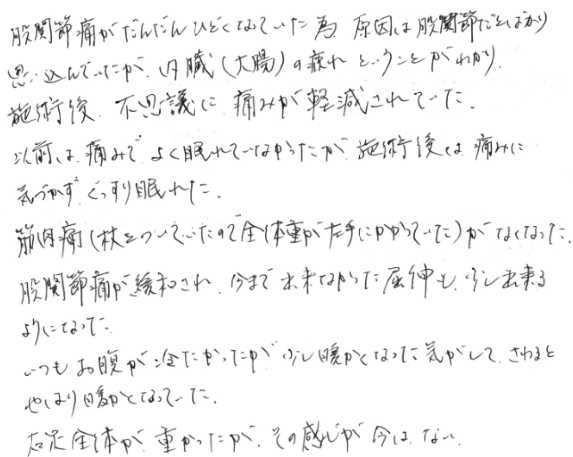 股関節痛がだんだんひどくなっていた為 原因は股関節だとばかり
思い込んでいたが、内臓（大腸）の疲れということがわかり、
施術後、不思議に痛みが軽減されていた。
以前は、痛みでよく眠れていなかったが、施術後は痛みに
気づかず ぐっすり眠れた。
筋肉痛（杖をついていたので全体重が左手にかかっていた）がなくなった。
股関節痛が緩和され、今まで出来なかった屈伸も、少し出来る
ようになった。
いつもお腹が冷たかったが、少し暖かくなった気がして、さわると
やはり暖かくなっていた。
右足全体が重かったが、その感じが今は、ない。